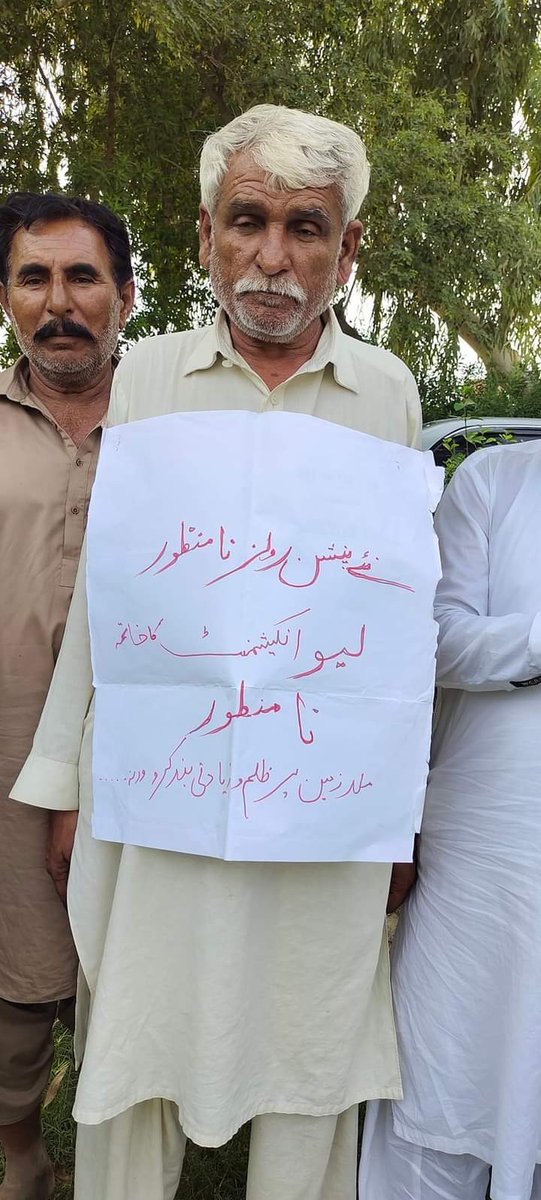 نئے پنشن رولز نا منظور
لیو انکیشمنٹ کا خاتمہ
نا منظور
ملازمین پر ظلم و زیادتی بند کرو ورنہ.....